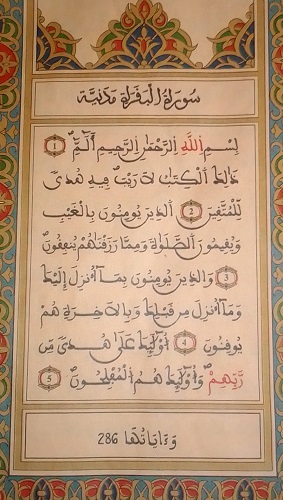 سورة البقرة مدنية
بسم الله الرحمن الرحيم الم 1
ذلك الكتب لا ريب فيه هدى
للمتقين 2 الذين يومنون بالغيب
ويقيمون الصلوة ومما رزقنهم ينفقون
3 والذين يومنون بما أنزل إليك
وما أنزل من قبلك وبالاخرة هم
يوقنون 4 أولئك على هدى من
ربهم وأولئك هم المفلحون 5
وءاياتها 286